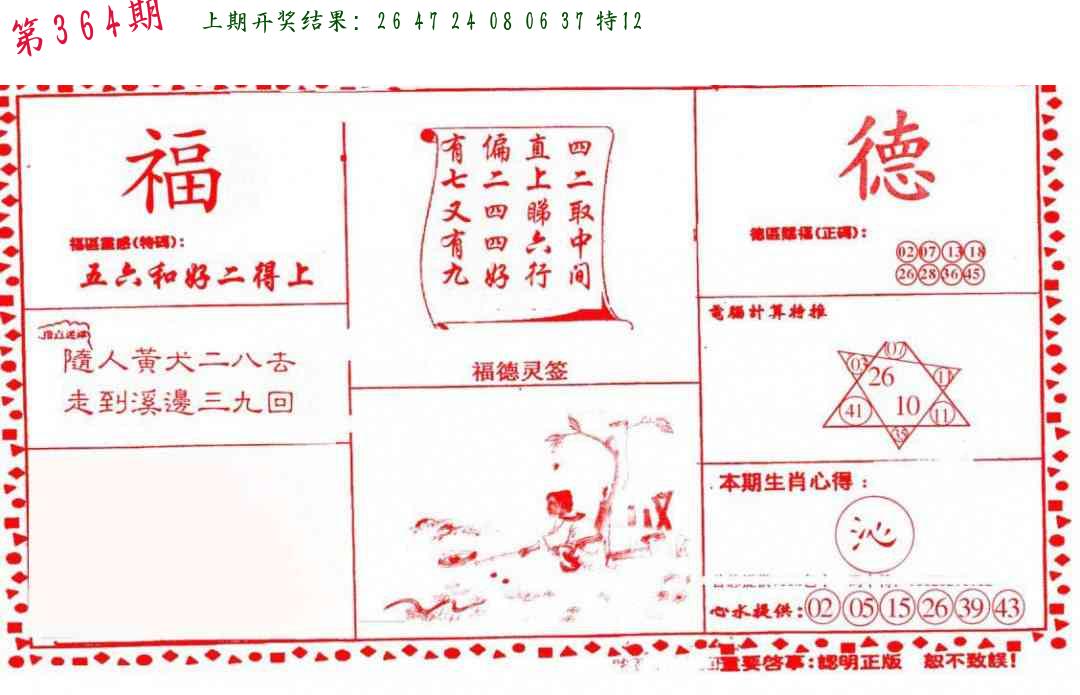 第364期
上期开奖结果：26 47 24 08 06 37 特12
福
福區靈感(特碼)：
五六和好二得上
隨人黃犬二八去
走到溪邊三九回
四二取中间
直上睇六行
偏二四四好
有七又有九
福德灵签
德
德區賜福(正碼)：
02 07 13 18
26 28 36 45
電腦計算特推
07
03 11
26
41 10 11
39
本期生肖心得：
沁
心水提供：02 05 15 26 39 43
重要啓事：認明正版 恕不致誤！